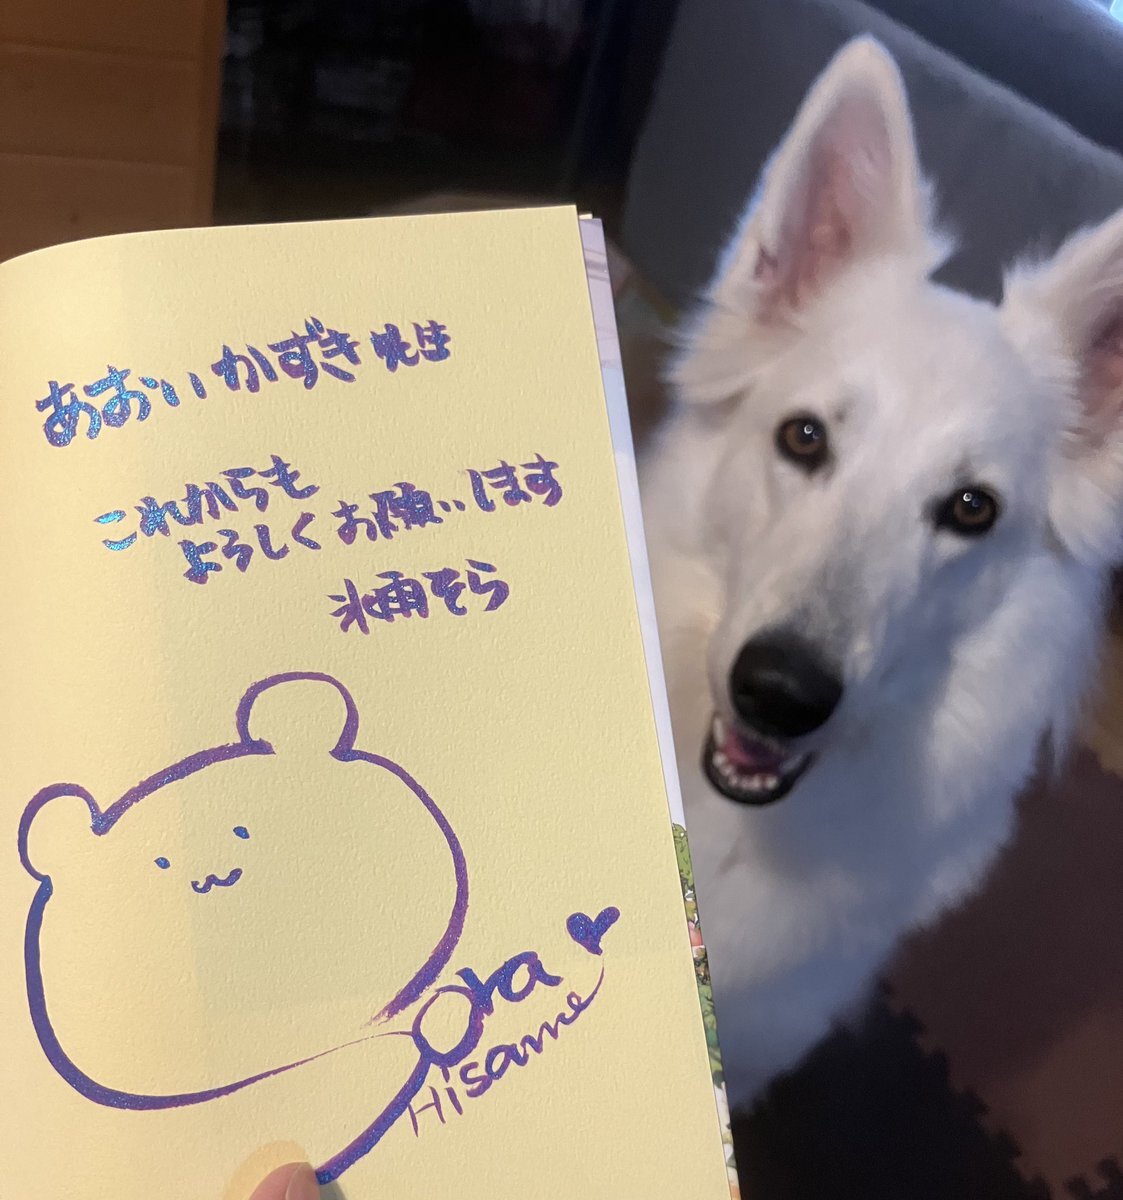 あおいかずき
これからも
よろしくお願いします
氷雨そら
Sora
Hisame